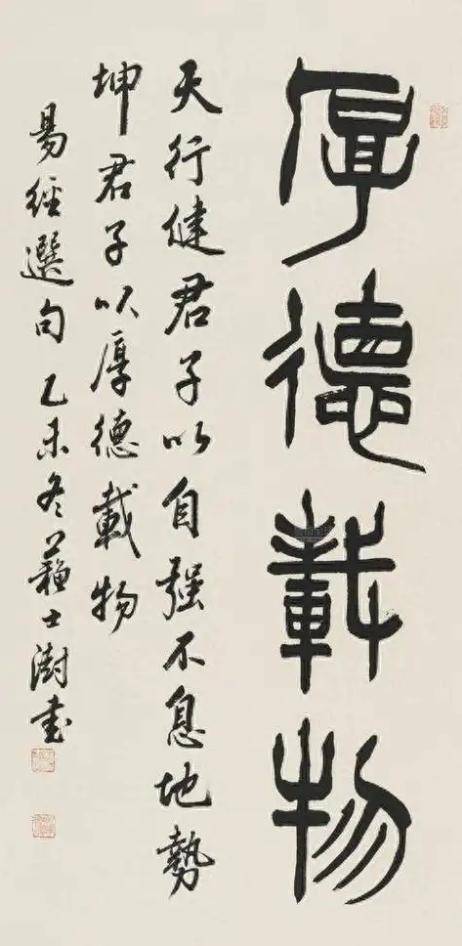 厚德載物
天行健君子以自强不息地勢
坤君子以厚德載物
易經選句乙未冬蘇士澍書